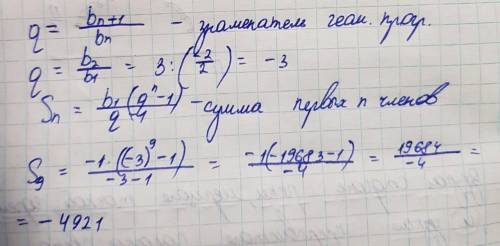 q = b_{n+1}/b_n - знаменатель геом. прогр.
q = b_2/b_1 = 3 : (-2/2) = -3
S_n = b_1(q^n - 1)/q - сумма первых n членов
S_9 = -1 · ((-3)^9 - 1)/-3 - 1 = -1(-19683 - 1)/-4 = 19684/-4 =
= -4921